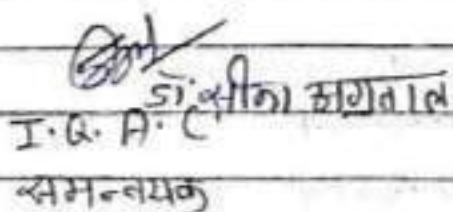 डॉ. सीमा अग्रवाल
I.Q.A.C
समन्वयक